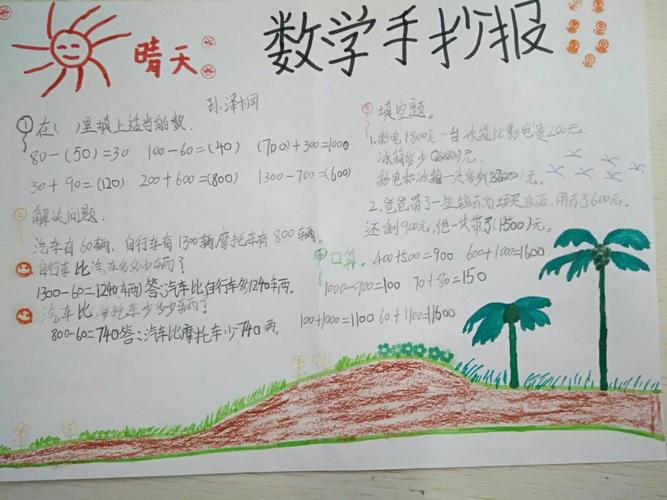 晴天
数学手抄报
孙泽桐
① 在( )里填上适当的数.
80-(50)=30 100-60=(40) (700)+300=1000
30+90=(120) 200+600=(800) 1300-700=(600)
② 解决问题.
汽车有60辆,自行车有1300辆,摩托车有800辆。
自行车比汽车多多少辆?
1300-60=1240(辆)答:汽车比自行车多1240辆.
汽车比摩托车少多少辆?
800-60=740答:汽车比摩托车少740辆.
③ 填空题。
1.彩电1800元一台冰箱比彩电贵200元,
冰箱多少()元.
彩电和冰箱一次多少()元。
2.爸爸带了一些钱去商场买东西,用去了600元。
还剩900元,他一共带了(1500)元。
④ 口算.
400+500=900 600+1000=1600
1000-900=100 70+80=150
100+1000=1100 60+1100=11600